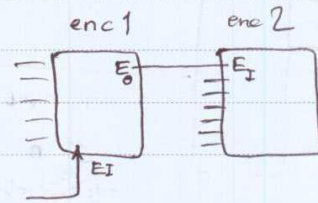 enc 1 enc 2
E₀ E_I
EI